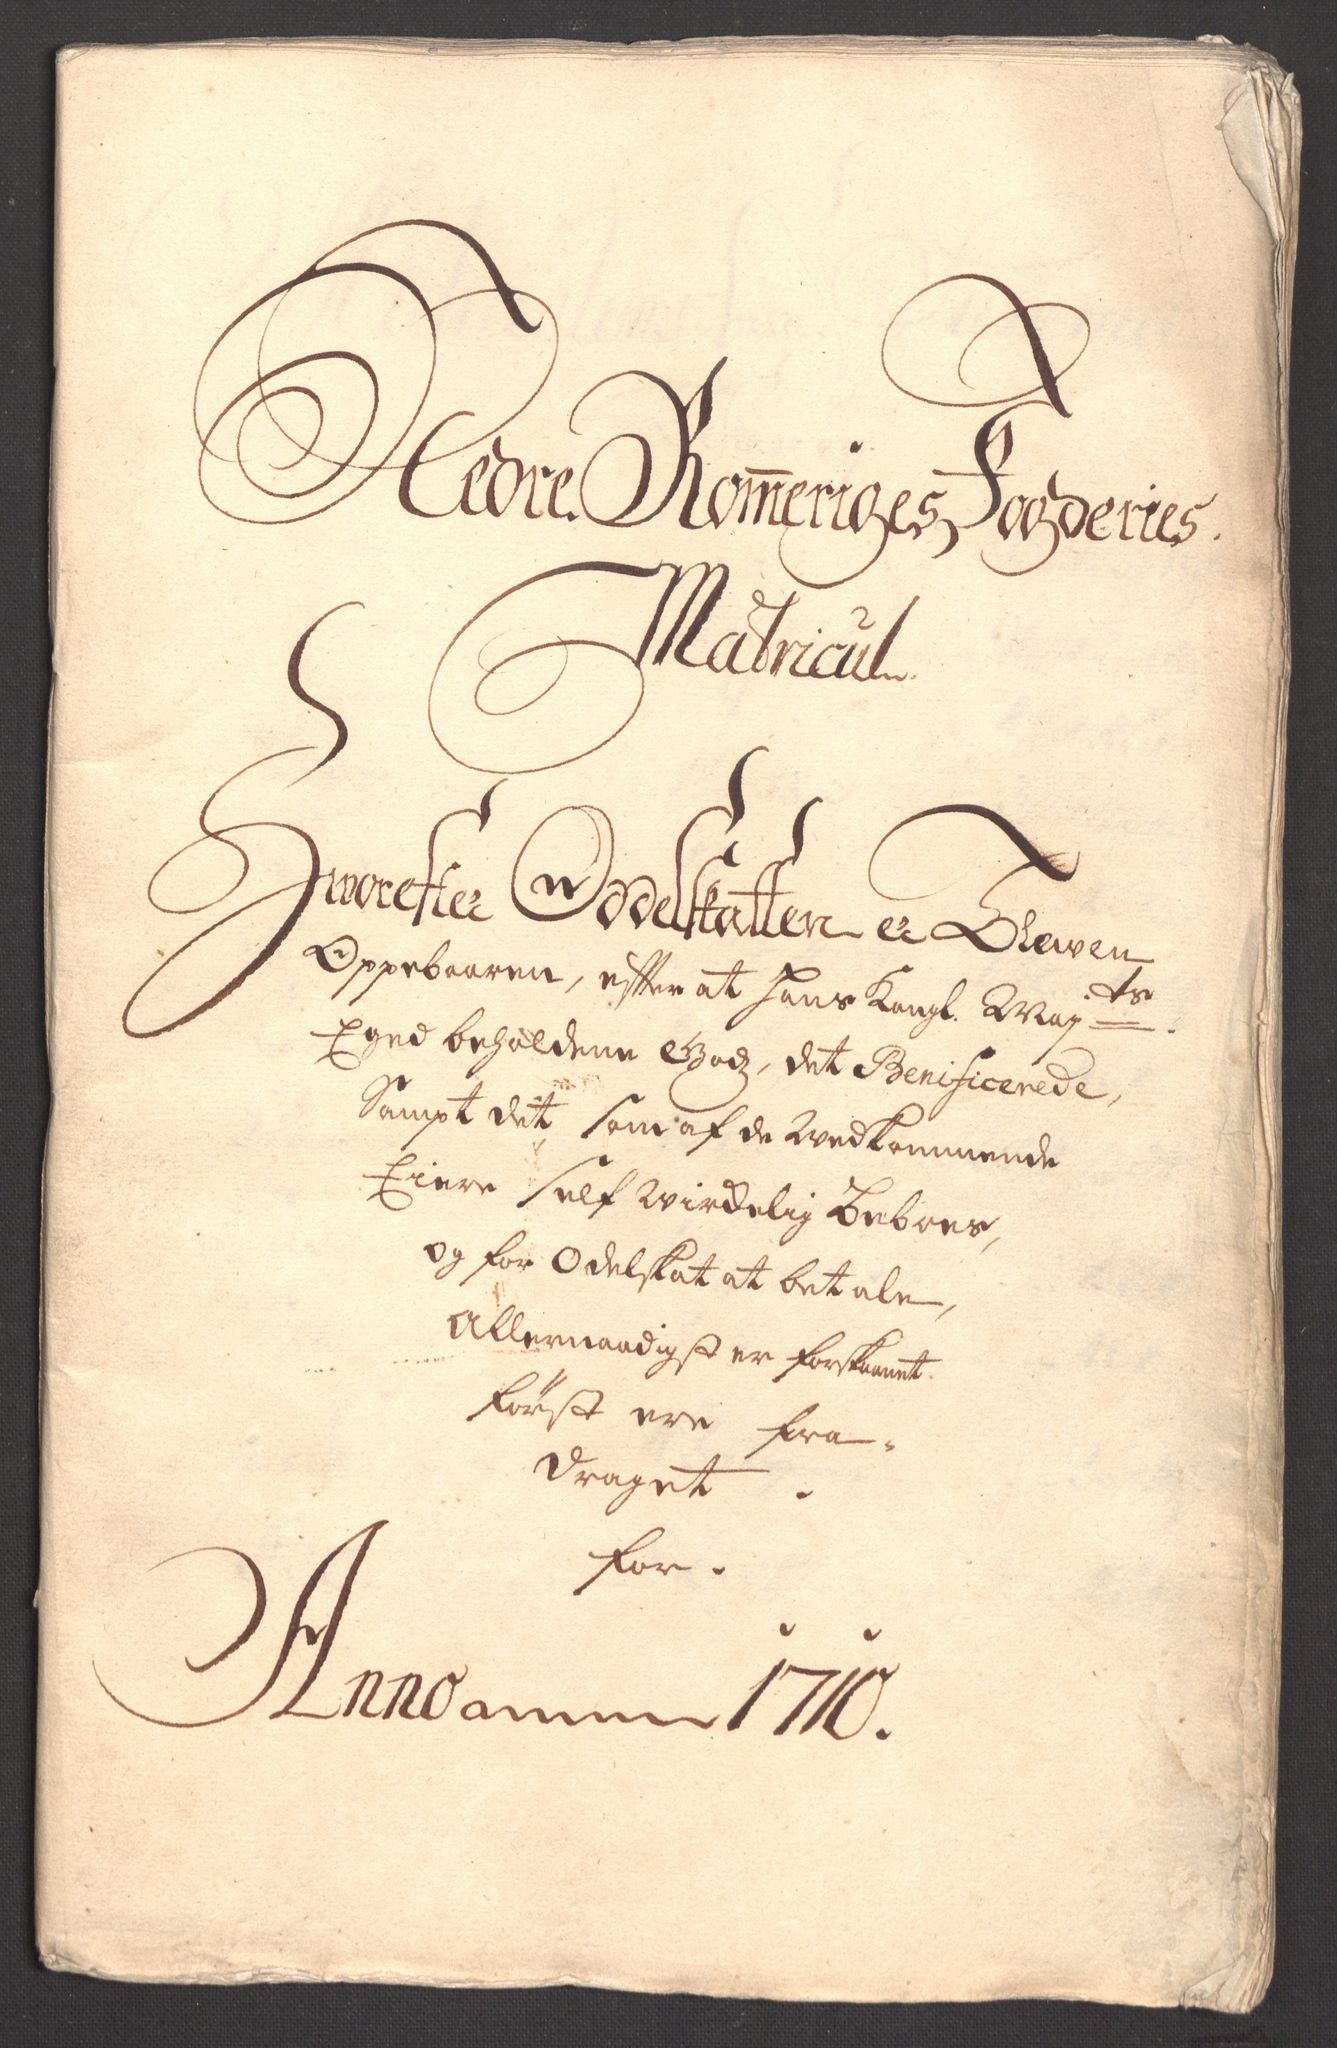 Nedre Rom̅eriges Fogderies.
Matricul
Hworefter Oddelskatten er Bleven
Oppebaaren, effter at Hans Kongl. May.ts
Eged beholdene Godz, det Benificerede,
Sampt det, som af de Wedkommende
Eiere self Wirckelig Beboes,
og for Odelskat at betale,
Allernaadigst er forskaanet
først ere fra-
draget.
for.
Anno 1710.